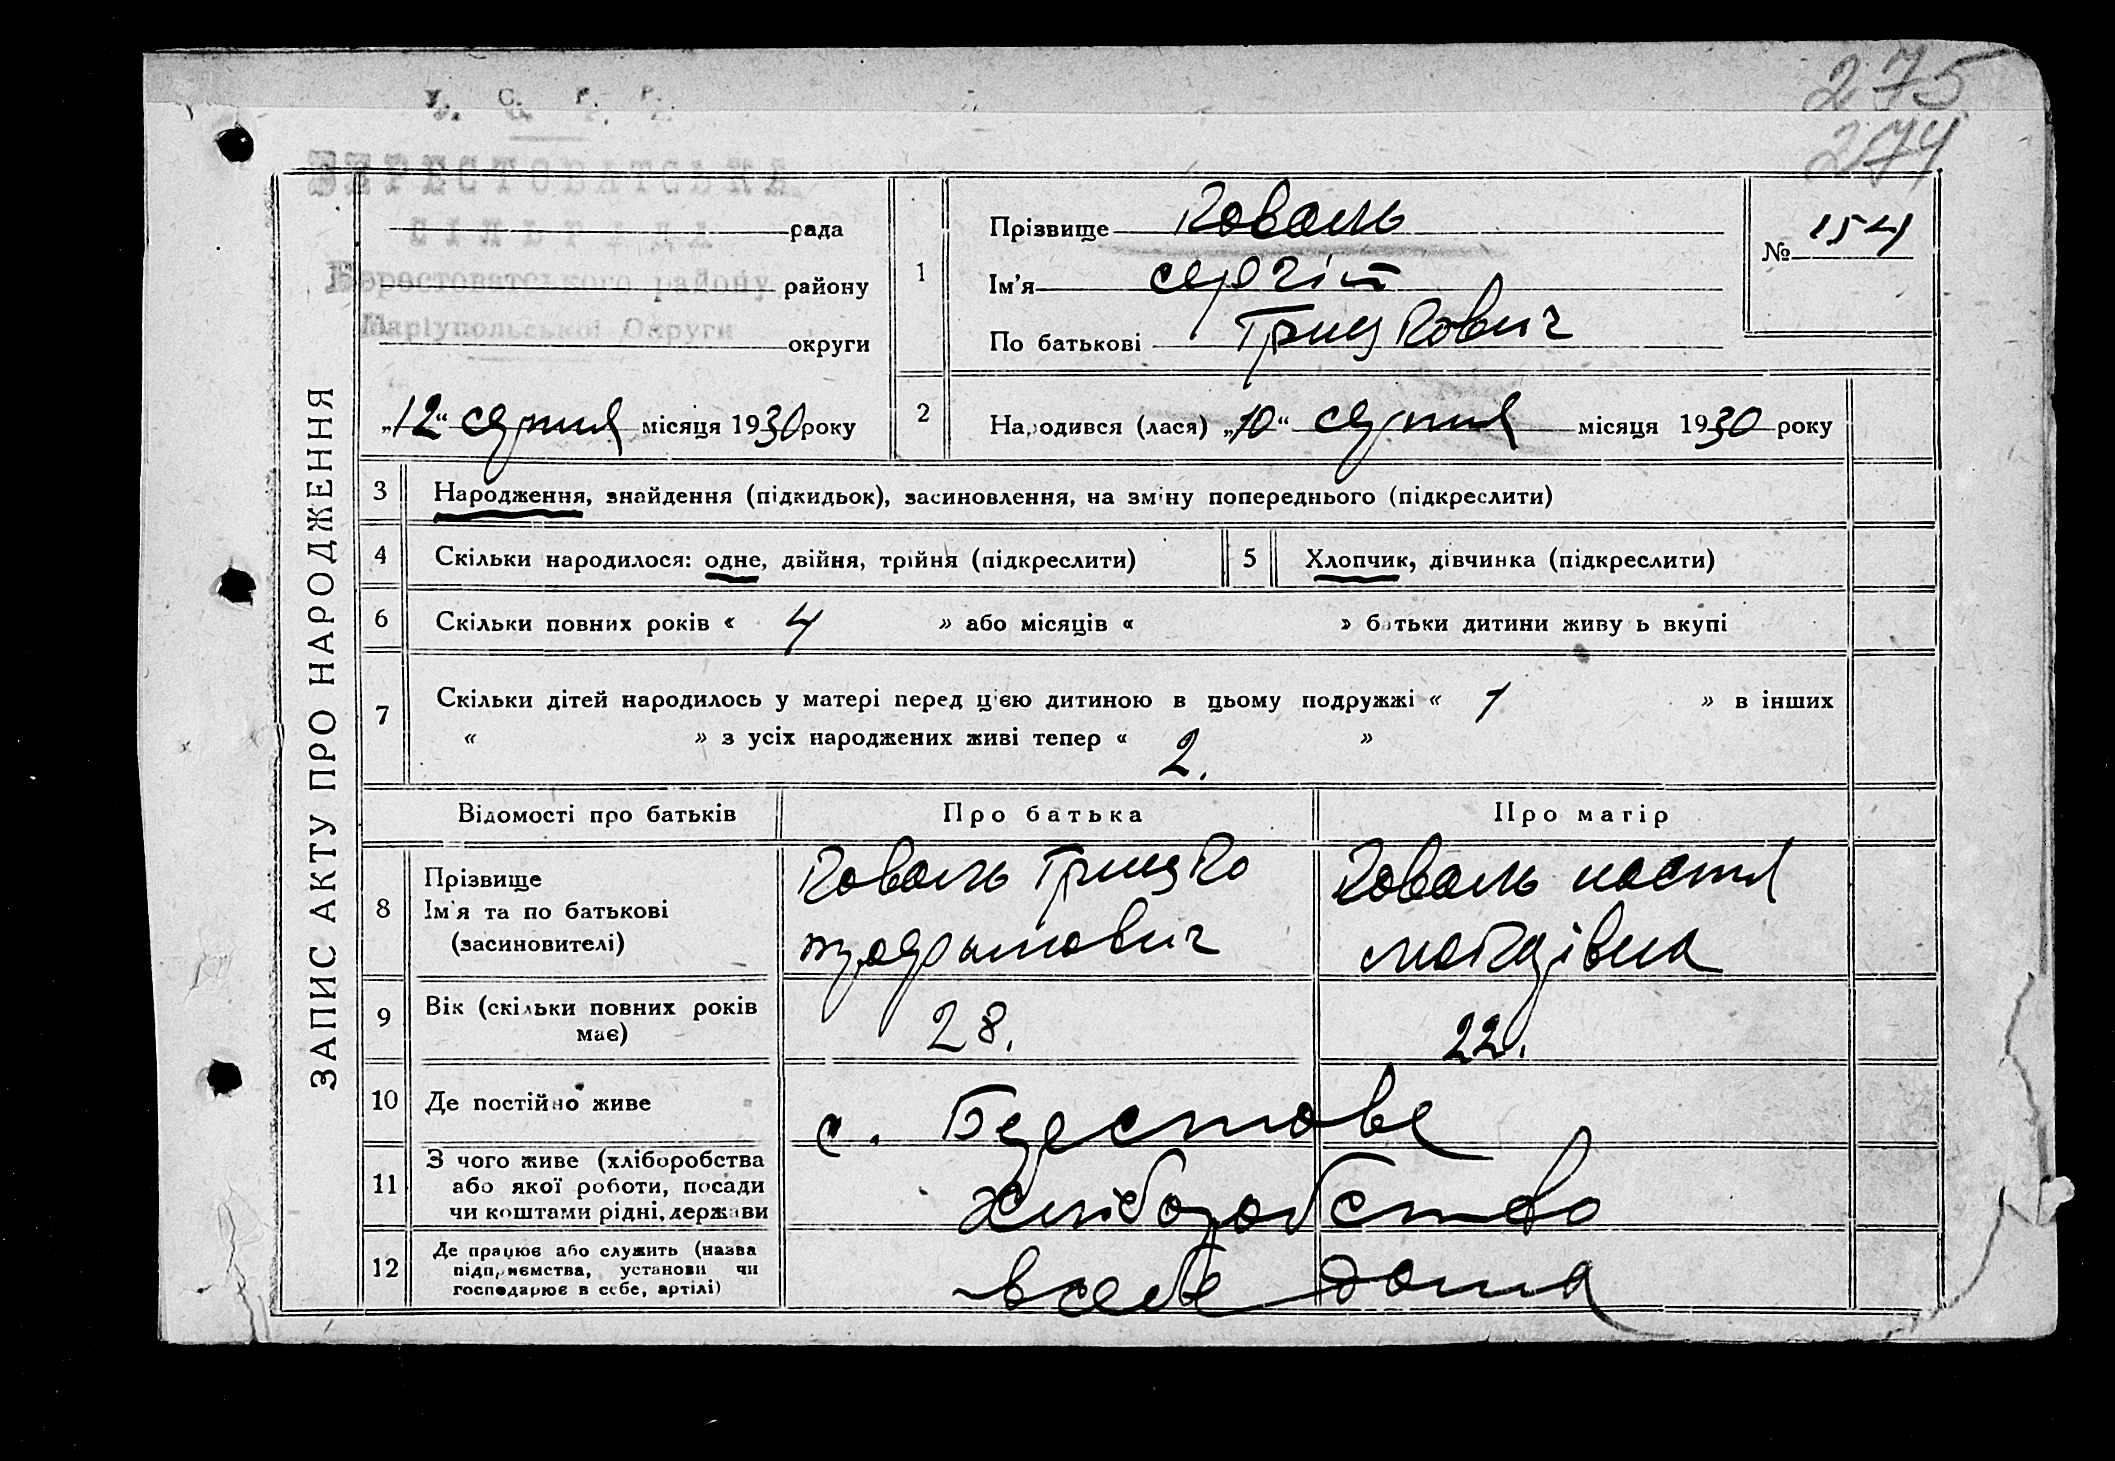 275
274
У. С. Р. Р.
БЕРЕСТОВАТСЬКА
СІЛЬРАДА
рада
Берестоватського району
району
Маріупольської Округи
округи
„12“ серпня місяця 1930 року
1
Прізвище Коваль
Ім'я сергій
По батькові Грицкович
№ 154
2
Народився (лася) „10“ серпня місяця 1930 року
ЗАПИС АКТУ ПРО НАРОДЖЕННЯ
3 Народження, знайдення (підкидьок), засиновлення, на зміну попереднього (підкреслити)
4 Скільки народилося: одне, двійня, трійня (підкреслити)
5 Хлопчик, дівчинка (підкреслити)
6 Скільки повних років « 4 » або місяців « » батьки дитини живуть вкупі
7 Скільки дітей народилось у матері перед цією дитиною в цьому подружжі « 1 » в інших
« » з усіх народжених живі тепер « 2. »
Відомості про батьків Про батька Про матір
8 Прізвище
Ім'я та по батькові
(засиновителі)
Коваль Грицко
Коваль настя
9 Вік (скільки повних років
має)
28. 22.
10 Де постійно живе
с. Берестове
11 З чого живе (хліборобства
або якої роботи, посади
чи коштами рідні, держави
Хліборобство
12 Де працює або служить (назва
підприємства, установи чи
господарює в себе, артілі)
всебе дома